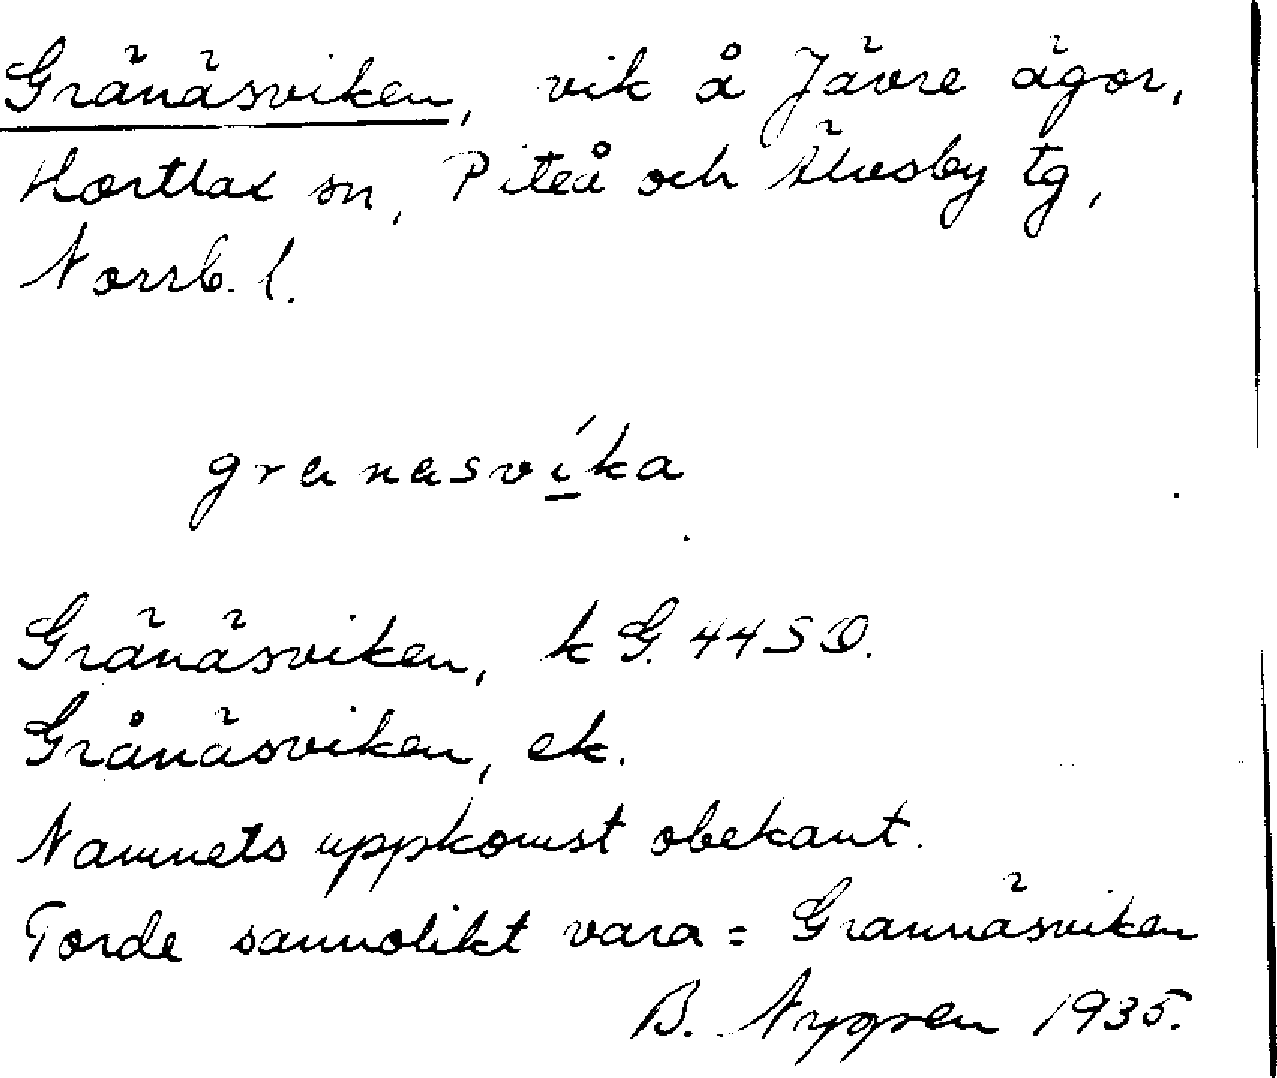 Gränäsviken, vik å Jävre ägor,
Hortlax sn, Piteå och Älvsby tg,
Norrb. l.
granasvíka
Gränäsviken, k G. 44 S O.
Grånäsviken, ek.
Namnets uppkomst obekant.
Torde sannolikt vara = Grannäsviken
B. Nygren 1935.